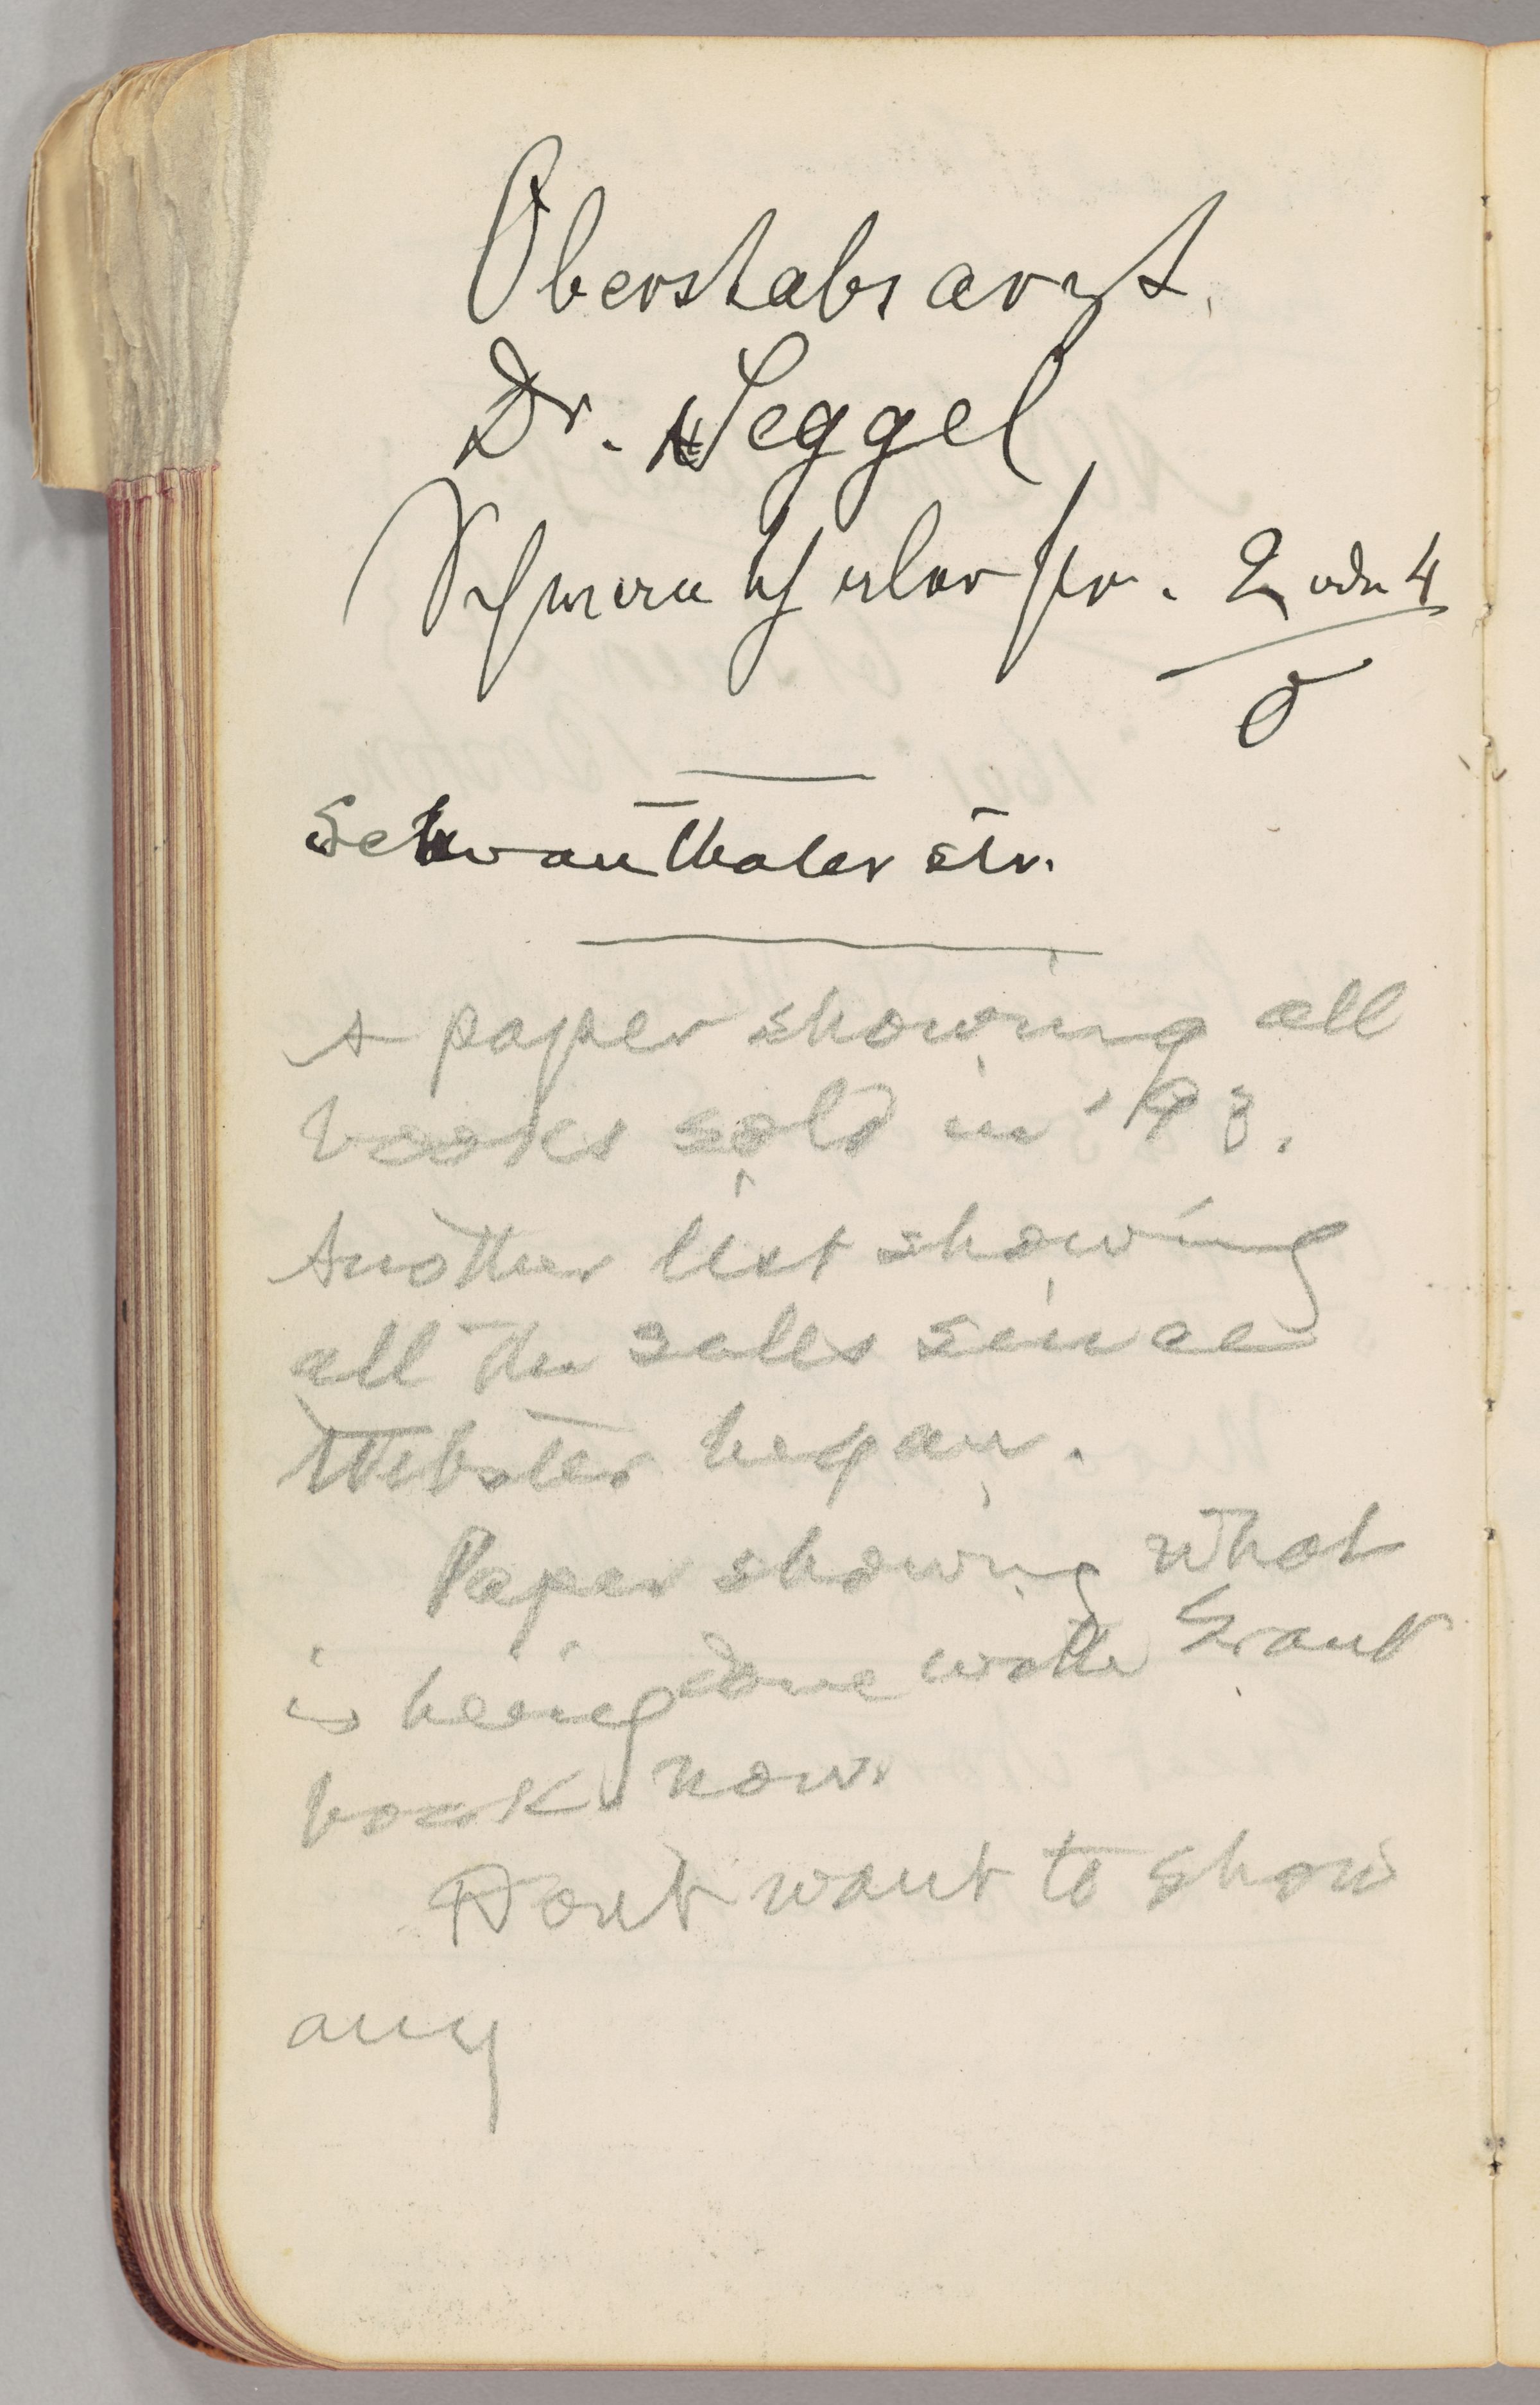 Oberstabsarzt.
Dr. Seggel
Schwanthalerstr. 2 oder 4
0
Schwanthaler str.
A paper showing all
books sold in '93.
Another list showing
all the sales since
Webster began.
Paper showing what
is being done with Grant
book now.
Don't want to show
any